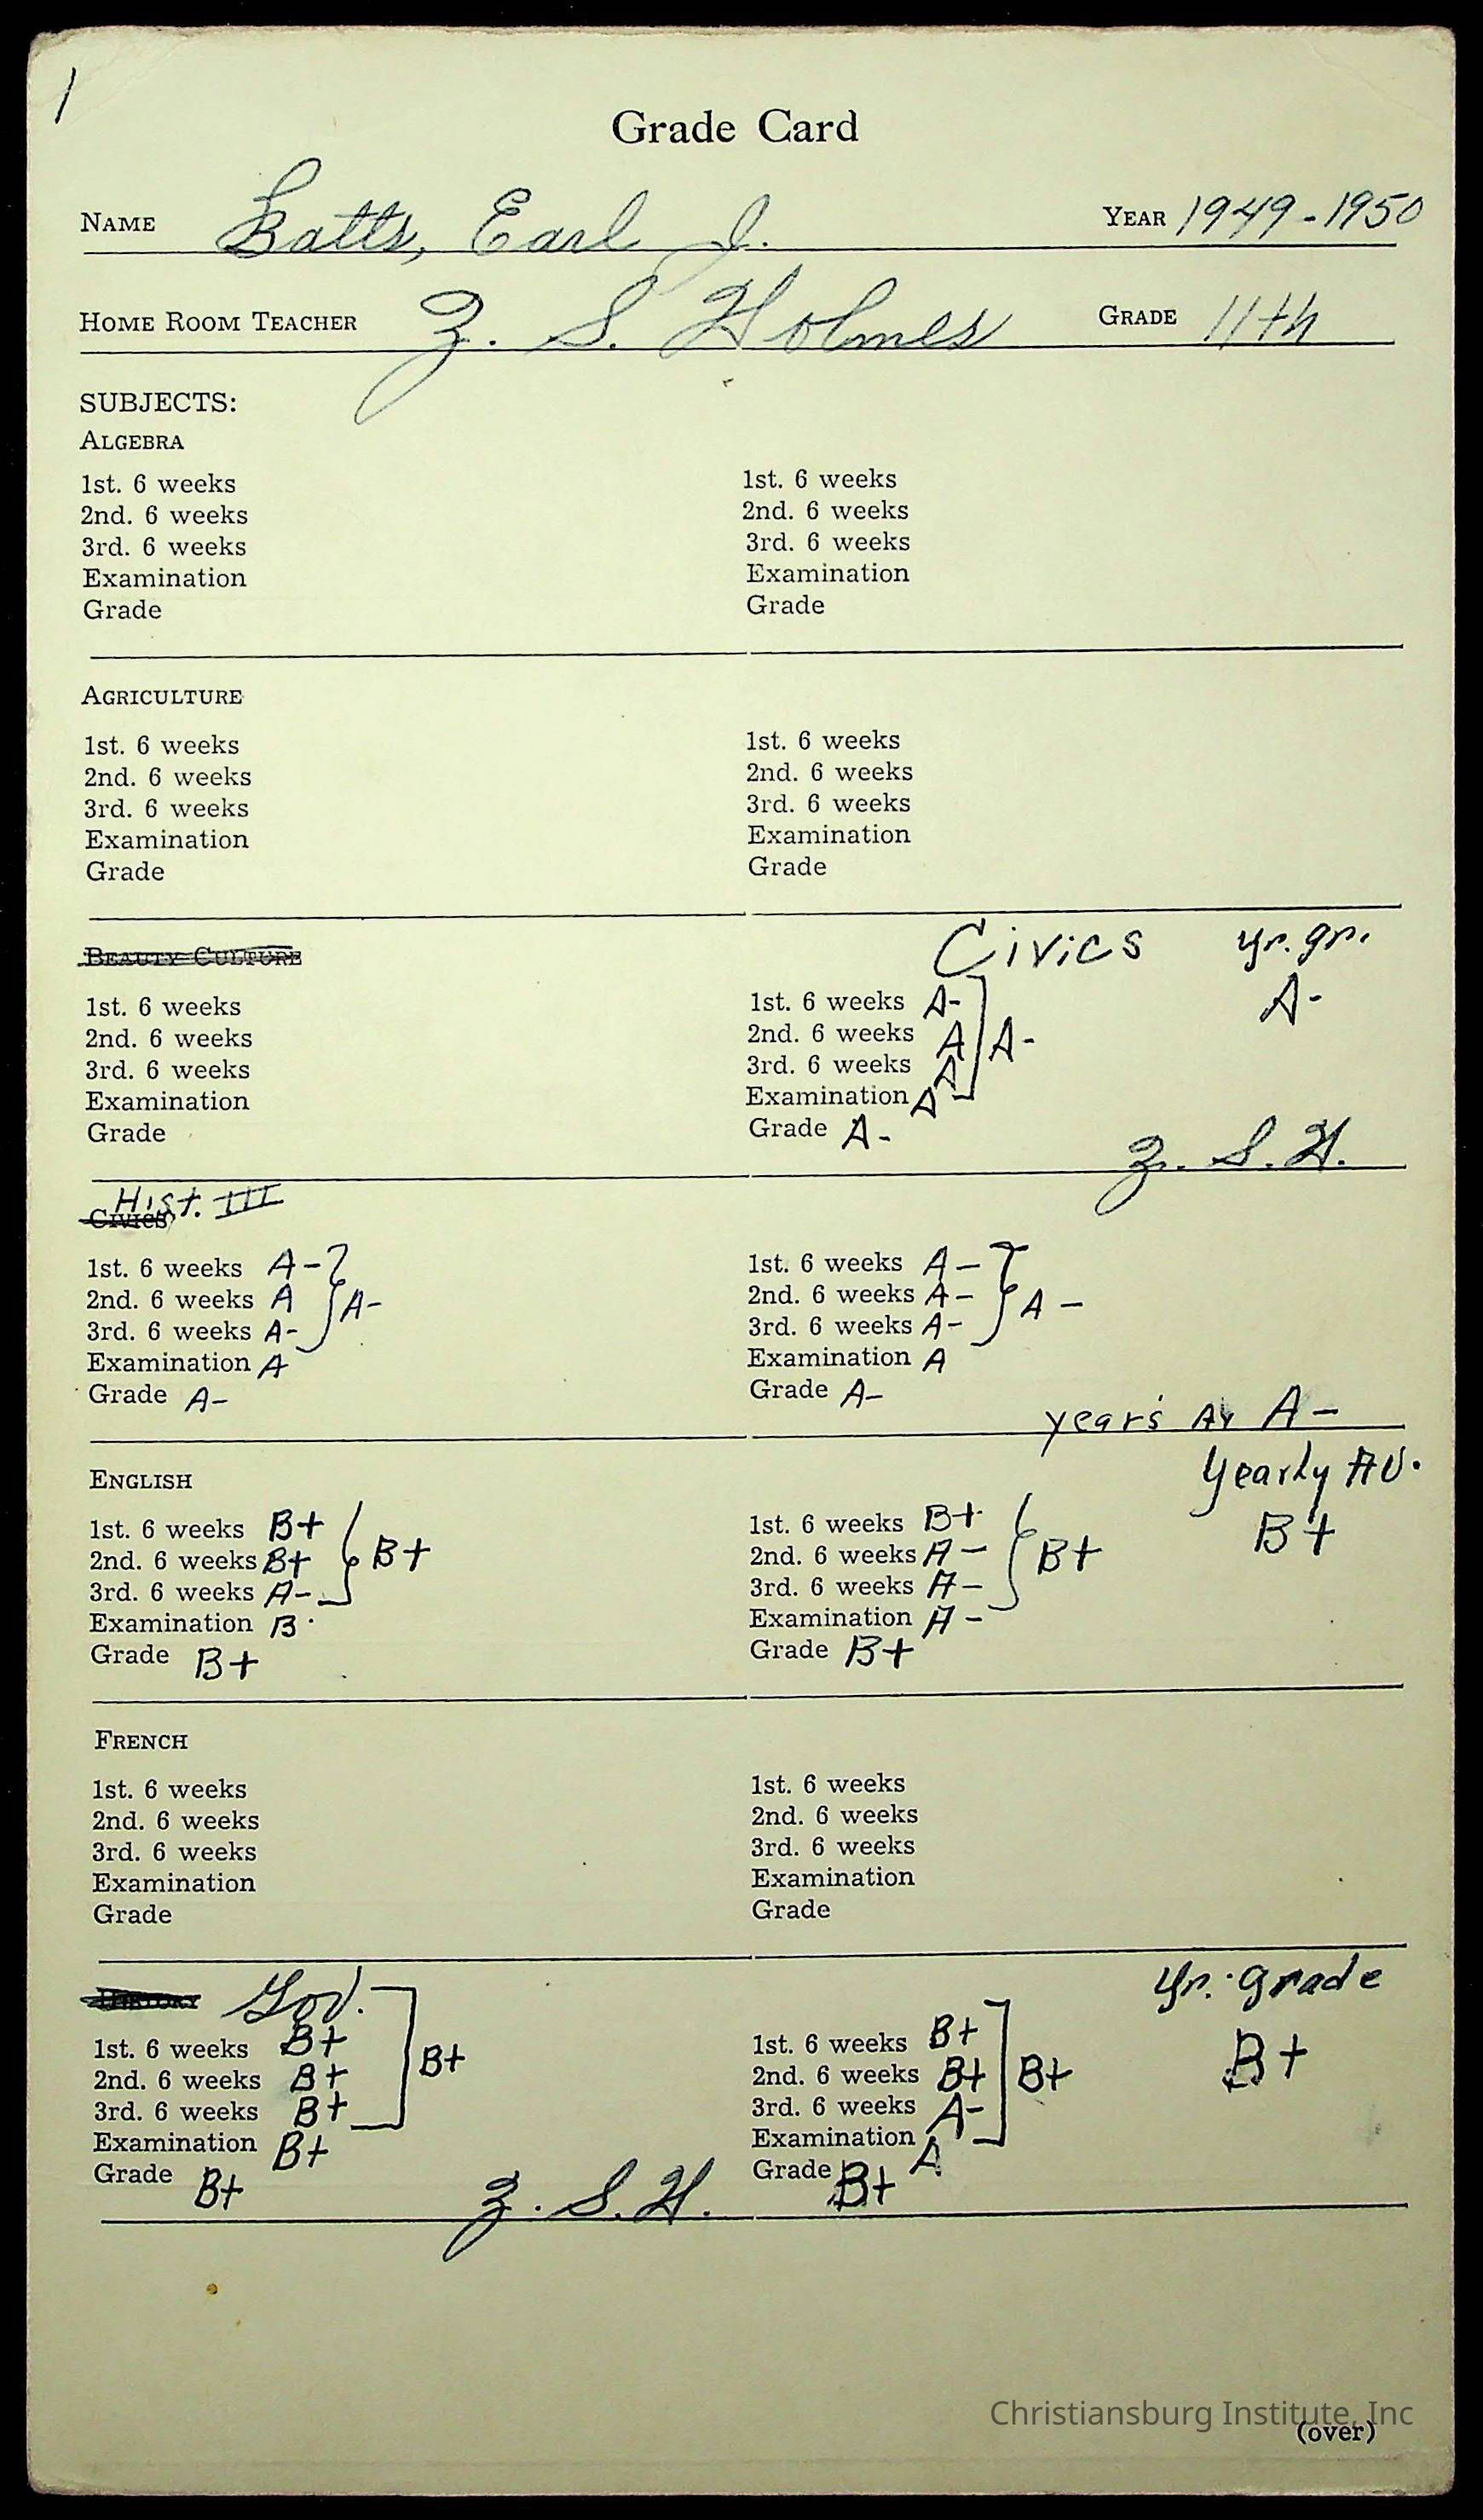 1
Grade Card
NAME Batts, Earl J. YEAR 1949-1950
HOME ROOM TEACHER Z. S. Holmes GRADE 11th
SUBJECTS:
ALGEBRA
1st. 6 weeks 1st. 6 weeks
2nd. 6 weeks 2nd. 6 weeks
3rd. 6 weeks 3rd. 6 weeks
Examination Examination
Grade Grade
AGRICULTURE
1st. 6 weeks 1st. 6 weeks
2nd. 6 weeks 2nd. 6 weeks
3rd. 6 weeks 3rd. 6 weeks
Examination Examination
Grade Grade
BEAUTY CULTURE Civics yr. gr.
1st. 6 weeks 1st. 6 weeks A- A-
2nd. 6 weeks 2nd. 6 weeks A A-
3rd. 6 weeks 3rd. 6 weeks A
Examination Examination A
Grade Grade A-
Z. S. H.
Hist. III
CIVICS
1st. 6 weeks A- 1st. 6 weeks A-
2nd. 6 weeks A A- 2nd. 6 weeks A- A-
3rd. 6 weeks A- 3rd. 6 weeks A-
Examination A Examination A
Grade A- Grade A-
year's Av A-
ENGLISH Yearly AV.
1st. 6 weeks B+ 1st. 6 weeks B+ B+
2nd. 6 weeks B+ B+ 2nd. 6 weeks A- B+
3rd. 6 weeks A- 3rd. 6 weeks A-
Examination B Examination A-
Grade B+ Grade B+
FRENCH
1st. 6 weeks 1st. 6 weeks
2nd. 6 weeks 2nd. 6 weeks
3rd. 6 weeks 3rd. 6 weeks
Examination Examination
Grade Grade
HISTORY Gov. yr. grade
1st. 6 weeks B+ B+ 1st. 6 weeks B+ B+
2nd. 6 weeks B+ 2nd. 6 weeks B+ B+
3rd. 6 weeks B+ 3rd. 6 weeks A-
Examination B+ Examination A
Grade B+ Z. S. H. Grade B+
Christiansburg Institute, Inc
(over)